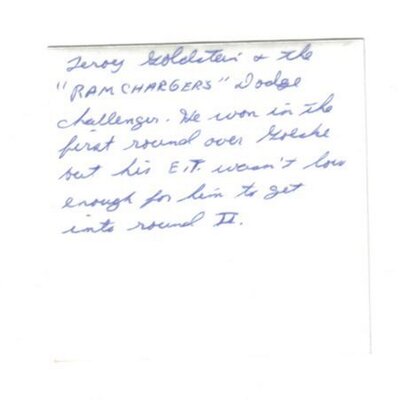 Leroy Goldstein & the
"RAMCHARGERS" Dodge
Challenger. He won in the
first round over Goeske
but his E.T. wasn't low
enough for him to get
into round II.